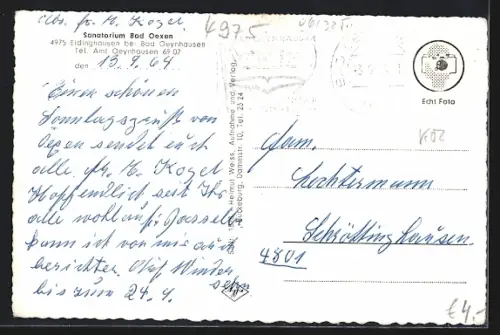 Abs. fr. H. Kogel
4975
Sanatorium Bad Oexen
4975 Eidinghausen bei Bad Oeynhausen
Tel. Amt Oeynhausen 69 07
den 13.9.64
Einen schönen
Sonntagsgruß von
Oexen sendet euch
alle. fr. H. Kogel
Hoffentlich seit Ihr
alle wohlauf.
kann ich von mir auch
berichten. Auf Wieder
sehn
bis zum 24.9.
Helmut Weiss, Aufnahme und Verlag,
Bückeburg, Dammstr. 10, Tel. 23 24
Agfa
Echt Foto
Fam.
Lochtermann
Schröttinghausen
4801
€4,-